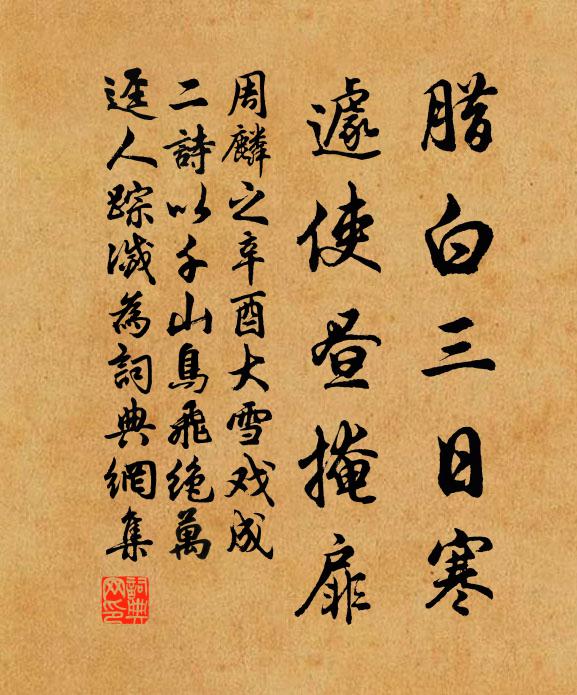 腊白三日寒
遽使昼掩扉
周麟之辛酉大雪戏成
二詩以千山鳥飛绝萬
逕人踪滅為詞典網集
詞典网印